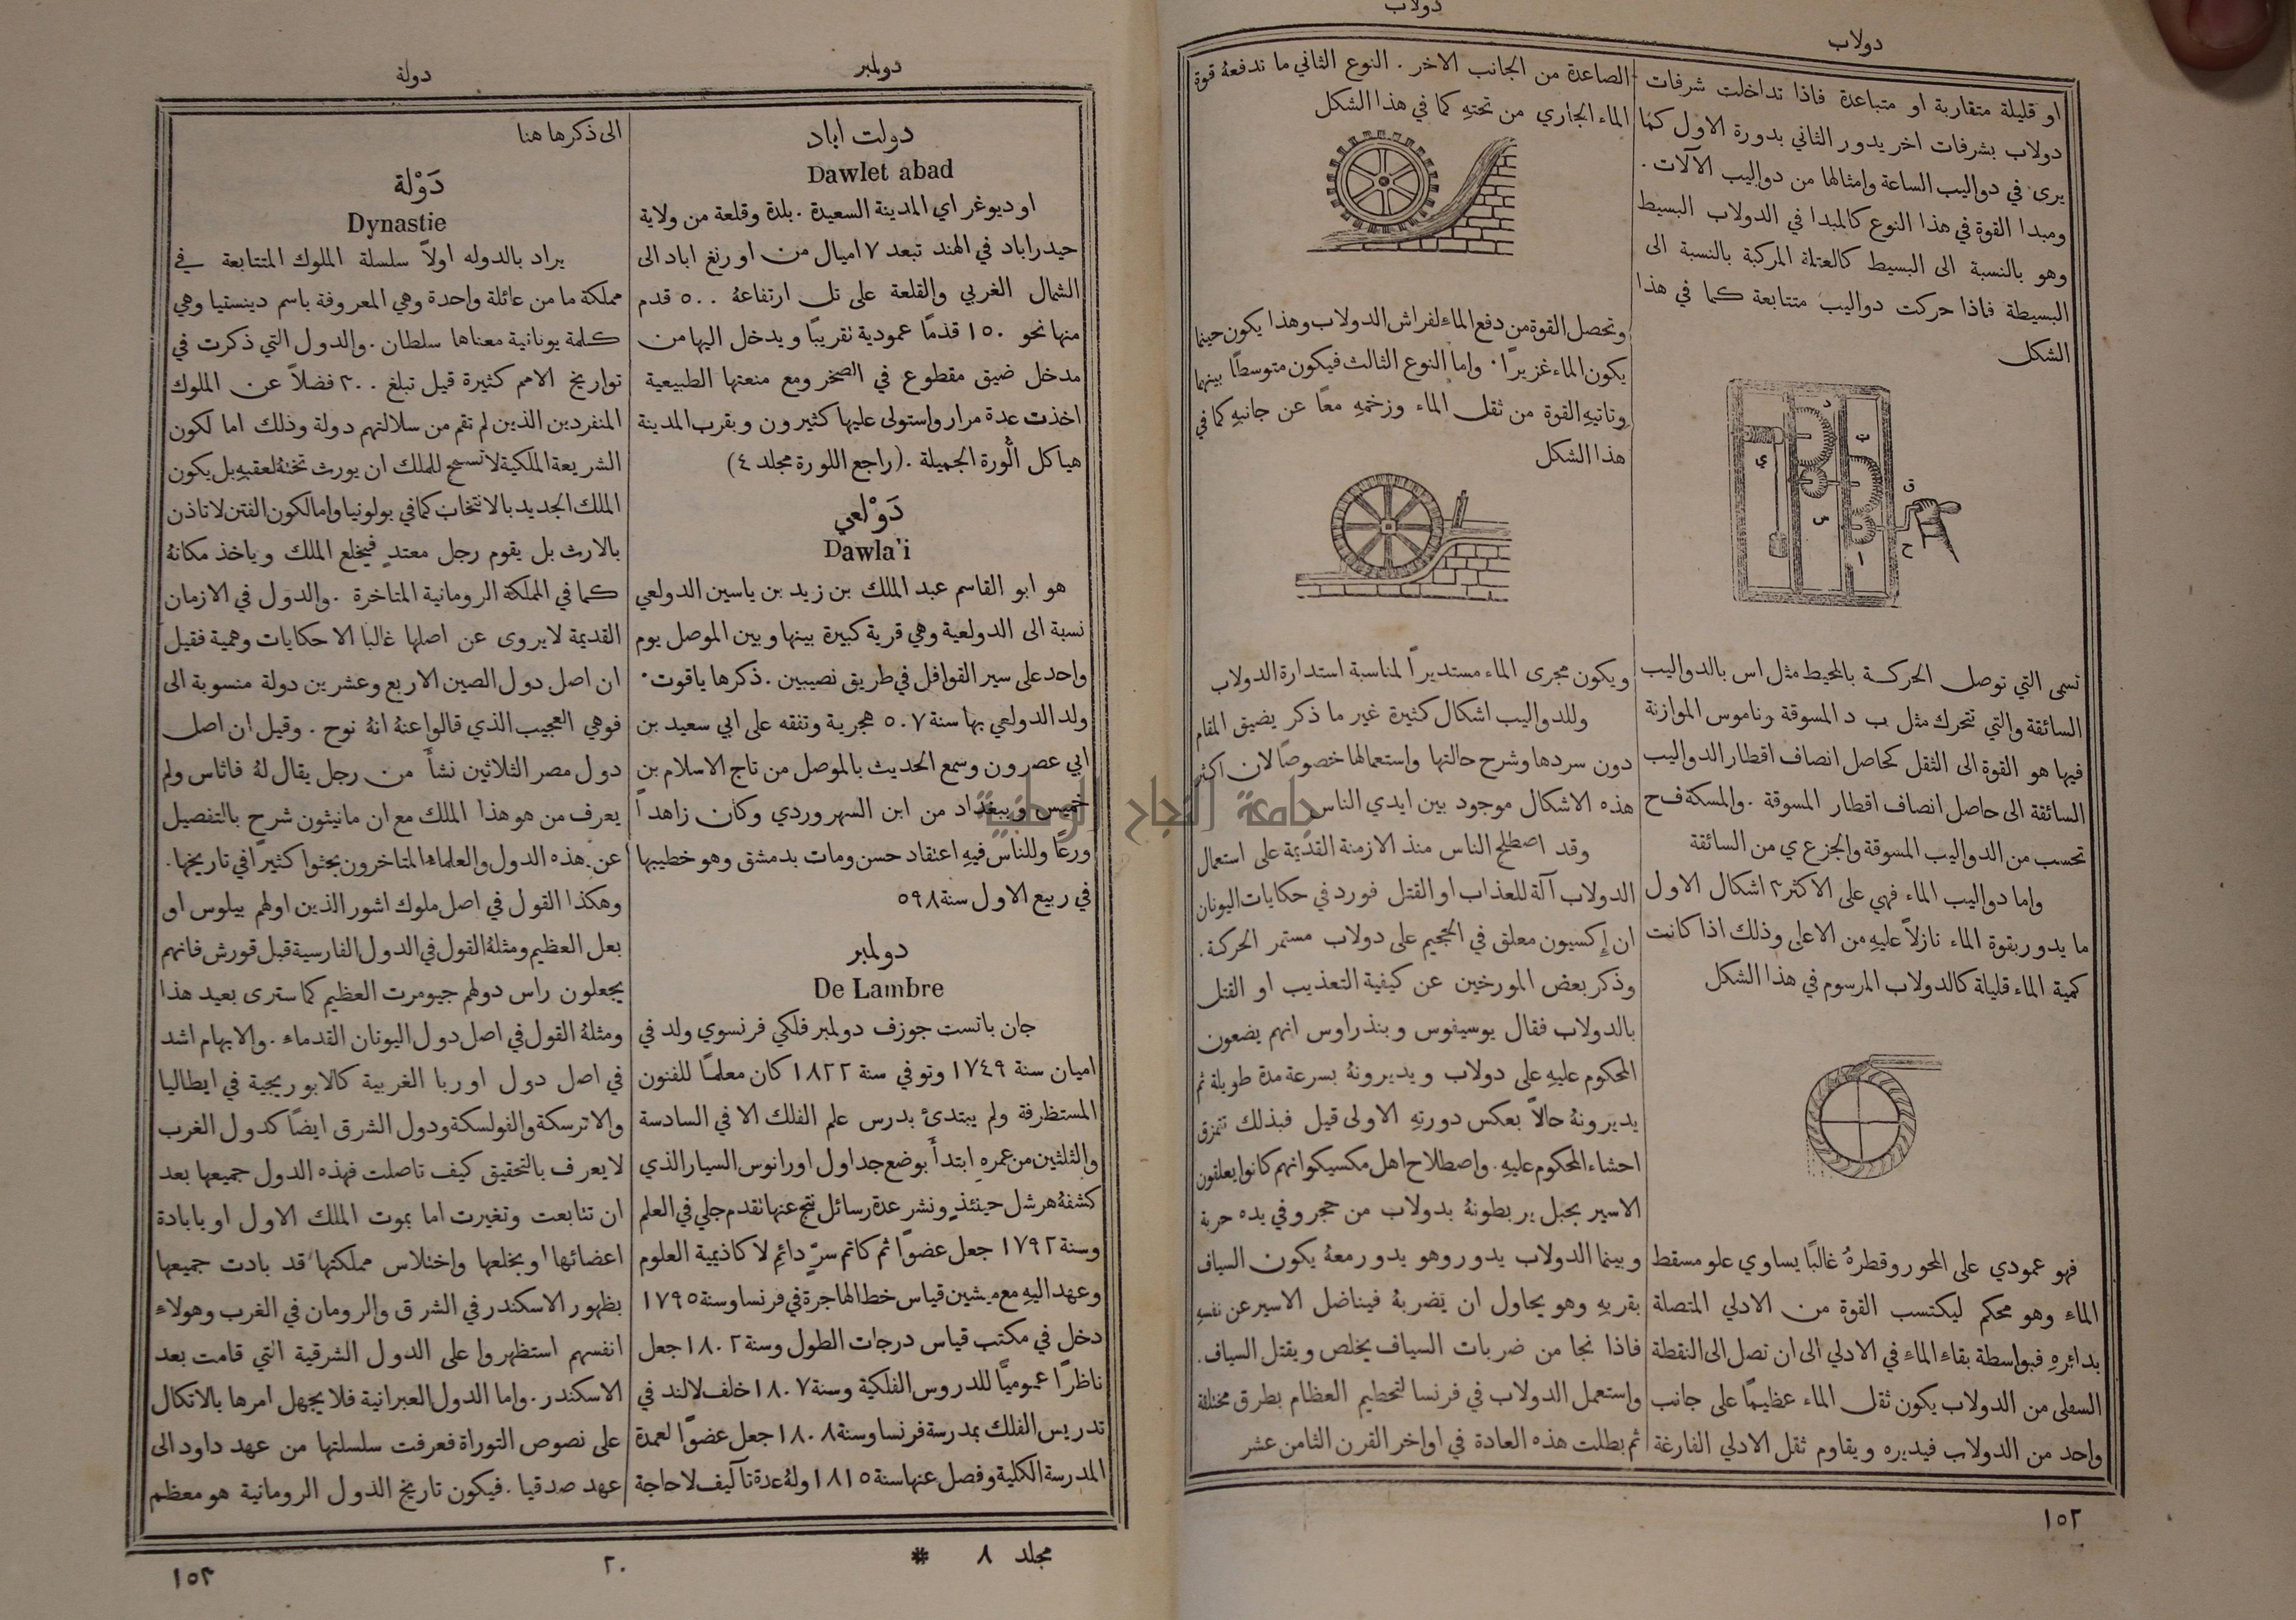 دولاب
دولاب
او قليلة متقاربة او متباعدة فاذا تداخلت شرفات
دولاب بشرفات اخر يدور الثاني بدورة الاول كما
يرى في دواليب الساعة وامثالها من دواليب الآلات.
ومبدا القوة في هذا النوع كالمبدا في الدولاب البسيط
وهو بالنسبة الى البسيط كالعتلة المركبة بالنسبة الى
البسيطة فاذا حركت دواليب متتابعة كما في هذا
الشكل
د
ب
ي
ق
س
ا
ح
تسمى التي توصل الحركة بالمحيط مثل اس بالدواليب
السائقة والتي تتحرك مثل ب د المسوقة وناموس الموازنة
فيها هو القوة الى الثقل كحاصل انصاف اقطار الدواليب
السائقة الى حاصل انصاف اقطار المسوقة. والمسكة ف ح
تحسب من الدواليب المسوقة والجزع ي من السائقة
واما دواليب الماء فهي على الاكثر ٣ اشكال الاول
ما يدور بقوة الماء نازلاً عليهِ من الاعلى وذلك اذا كانت
كمية الماء قليلة كالدولاب المرسوم في هذا الشكل
فهو عمودي على المحور وقطرهُ غالبًا يساوي علو مسقط
الماء وهو محكم ليكتسب القوة من الادلي المتصلة
بدائرهِ فبواسطة بقاء الماء في الادلي الى ان تصل الى النقطة
السفلى من الدولاب يكون ثقل الماء عظيمًا على جانب
واحد من الدولاب فيديره ويقاوم ثقل الادلي الفارغة
الصاعدة من الجانب الاخر. النوع الثاني ما تدفعهُ قوة
الماء الجاري من تحتهِ كما في هذا الشكل
وتحصل القوة من دفع الماء لفراش الدولاب وهذا يكون حينما
يكون الماء غزيرًا. واما النوع الثالث فيكون متوسطًا بينهما
وتاتيهِ القوة من ثقل الماء وزخمهِ معًا عن جانبهِ كما في
هذا الشكل
ويكون مجرى الماء مستديرًا لمناسبة استدارة الدولاب
وللدواليب اشكال كثيرة غير ما ذكر يضيق المقام
دون سردها وشرح حالتها واستعمالها خصوصًا لان اكثر
هذه الاشكال موجود بين ايدي الناس
وقد اصطلح الناس منذ الازمنة القديمة على استعمال
الدولاب آلة للعذاب او القتل فورد في حكايات اليونان
ان إكسيون معلق في الجحيم على دولاب مستمر الحركة.
وذكر بعض المورخين عن كيفية التعذيب او القتل
بالدولاب فقال يوسيفوس وبنذراوس انهم يضعون
المحكوم عليهِ على دولاب ويديرونهُ بسرعة مدة طويلة ثم
يديرونهُ حالاً بعكس دورتهِ الاولى قيل فبذلك تتمزق
احشاء المحكوم عليهِ. واصطلاح اهل مكسيكو انهم كانوا يعلقون
الاسير بحبل يربطونهُ بدولاب من حجر وفي يده حربة
وبينما الدولاب يدور وهو يدور معهُ يكون السياف
بقربهِ وهو يحاول ان يضربهُ فيناضل الاسير عن نفسهِ
فاذا نجا من ضربات السياف يخلص ويقتل السياف.
واستعمل الدولاب في فرنسا لتحطيم العظام بطرق مختلفة
ثم بطلت هذه العادة في اواخر القرن الثامن عشر
١٥٢
دولمبر
دولة
دولت اباد
Dawlet abad
او ديوغر اي المدينة السعيدة. بلدة وقلعة من ولاية
حيدراباد في الهند تبعد ٧ اميال من اورنغ اباد الى
الشمال الغربي والقلعة على تل ارتفاعهُ ٥٠٠ قدم
منها نحو ١٥٠ قدمًا عمودية تقريبًا ويدخل اليها من
مدخل ضيق مقطوع في الصخر ومع منعتها الطبيعية
اخذت عدة مرار واستولى عليها كثيرون وبقرب المدينة
هياكل الُّورة الجميلة. (راجع اللورة مجلد ٤)
دَوْلعي
Dawla'i
هو ابو القاسم عبد الملك بن زيد بن ياسين الدولعي
نسبة الى الدولعية وهي قرية كبيرة بينها وبين الموصل يوم
واحد على سير القوافل في طريق نصيبين. ذكرها ياقوت.
ولد الدولعي بها سنة ٥٠٧ هجرية وتفقه على ابي سعيد بن
ابي عصرون وسمع الحديث بالموصل من تاج الاسلام بن
خميس وببغداد من ابن السهروردي وكان زاهدًا
ورعًا وللناس فيهِ اعتقاد حسن ومات بدمشق وهو خطيبها
في ربيع الاول سنة ٥٩٨
دولمبر
De Lambre
جان باتست جوزف دولمبر فلكي فرنسوي ولد في
اميان سنة ١٧٤٩ وتوفي سنة ١٨٢٢ كان معلمًا للفنون
المستظرفة ولم يبتدئ بدرس علم الفلك الا في السادسة
والثلثين من عمرهِ ابتدأ بوضع جداول اورانوس السيار الذي
كشفهُ هرشل حينئذٍ ونشر عدة رسائل نتج عنها تقدم جلي في العلم
وسنة ١٧٩٢ جعل عضوًا ثم كاتم سرّ دائم لاكاذيمية العلوم
وعهد اليهِ مع ميشين قياس خط الهاجرة في فرنسا وسنة ١٧٩٥
دخل في مكتب قياس درجات الطول وسنة ١٨٠٢ جعل
ناظرًا عموميًّا للدروس الفلكية وسنة ١٨٠٧ خلف لالند في
تدريس الفلك بمدرسة فرنسا وسنة ١٨٠٨ جعل عضوًا لعمدة
المدرسة الكلية وفصل عنها سنة ١٨١٥ ولهُ عدة تآليف لا حاجة
الى ذكرها هنا
دَوْلة
Dynastie
يراد بالدوله اولاً سلسلة الملوك المتتابعة في
مملكة ما من عائلة واحدة وهي المعروفة باسم دينستيا وهي
كلمة يونانية معناها سلطان. والدول التي ذكرت في
تواريخ الامم كثيرة قيل تبلغ ٢٠٠ فضلاً عن الملوك
المنفردين الذين لم تقم من سلالتهم دولة وذلك اما لكون
الشريعة الملكية لا تسمح للملك ان يورث تختهُ لعقبهِ بل يكون
الملك الجديد بالانتخاب كما في بولونيا واما لكون الفتن لا تاذن
بالارث بل يقوم رجل معتدٍ فيخلع الملك وياخذ مكانهُ
كما في المملكة الرومانية المتاخرة. والدول في الازمان
القديمة لا يروى عن اصلها غالبًا الا حكايات وهمية فقيل
ان اصل دول الصين الاربع وعشرين دولة منسوبة الى
فوهي العجيب الذي قالوا عنهُ انهُ نوح. وقيل ان اصل
دول مصر الثلاثين نشأ من رجل يقال لهُ فاثاس ولم
يعرف من هو هذا الملك مع ان مانيثون شرح بالتفصيل
عن هذه الدول والعلماء المتاخرون بحثوا كثيرًا في تاريخها.
وهكذا القول في اصل ملوك اشور الذين اولهم بيلوس او
بعل العظيم ومثلهُ القول في الدول الفارسية قبل قورش فانهم
يجعلون راس دولهم جيومرت العظيم كما سترى بعيد هذا
ومثلهُ القول في اصل دول اليونان القدماء. والابهام اشد
في اصل دول اوربا الغربية كالابوريجية في ايطاليا
والاترسكة والفولسكة ودول الشرق ايضًا كدول الغرب
لا يعرف بالتحقيق كيف تاصلت فهذه الدول جميعها بعد
ان تتابعت وتغيرت اما بموت الملك الاول او بابادة
اعضائها او بخلعها واختلاس مملكتها قد بادت جميعها
بظهور الاسكندر في الشرق والرومان في الغرب وهولاء
انفسهم استظهروا على الدول الشرقية التي قامت بعد
الاسكندر. واما الدول العبرانية فلا يجهل امرها بالاتكال
على نصوص التوراة فعرفت سلسلتها من عهد داود الى
عهد صدقيا. فيكون تاريخ الدول الرومانية هو معظم
مجلد ٨ *
٢٠
١٥٣
جامعة النجاح الوطنية